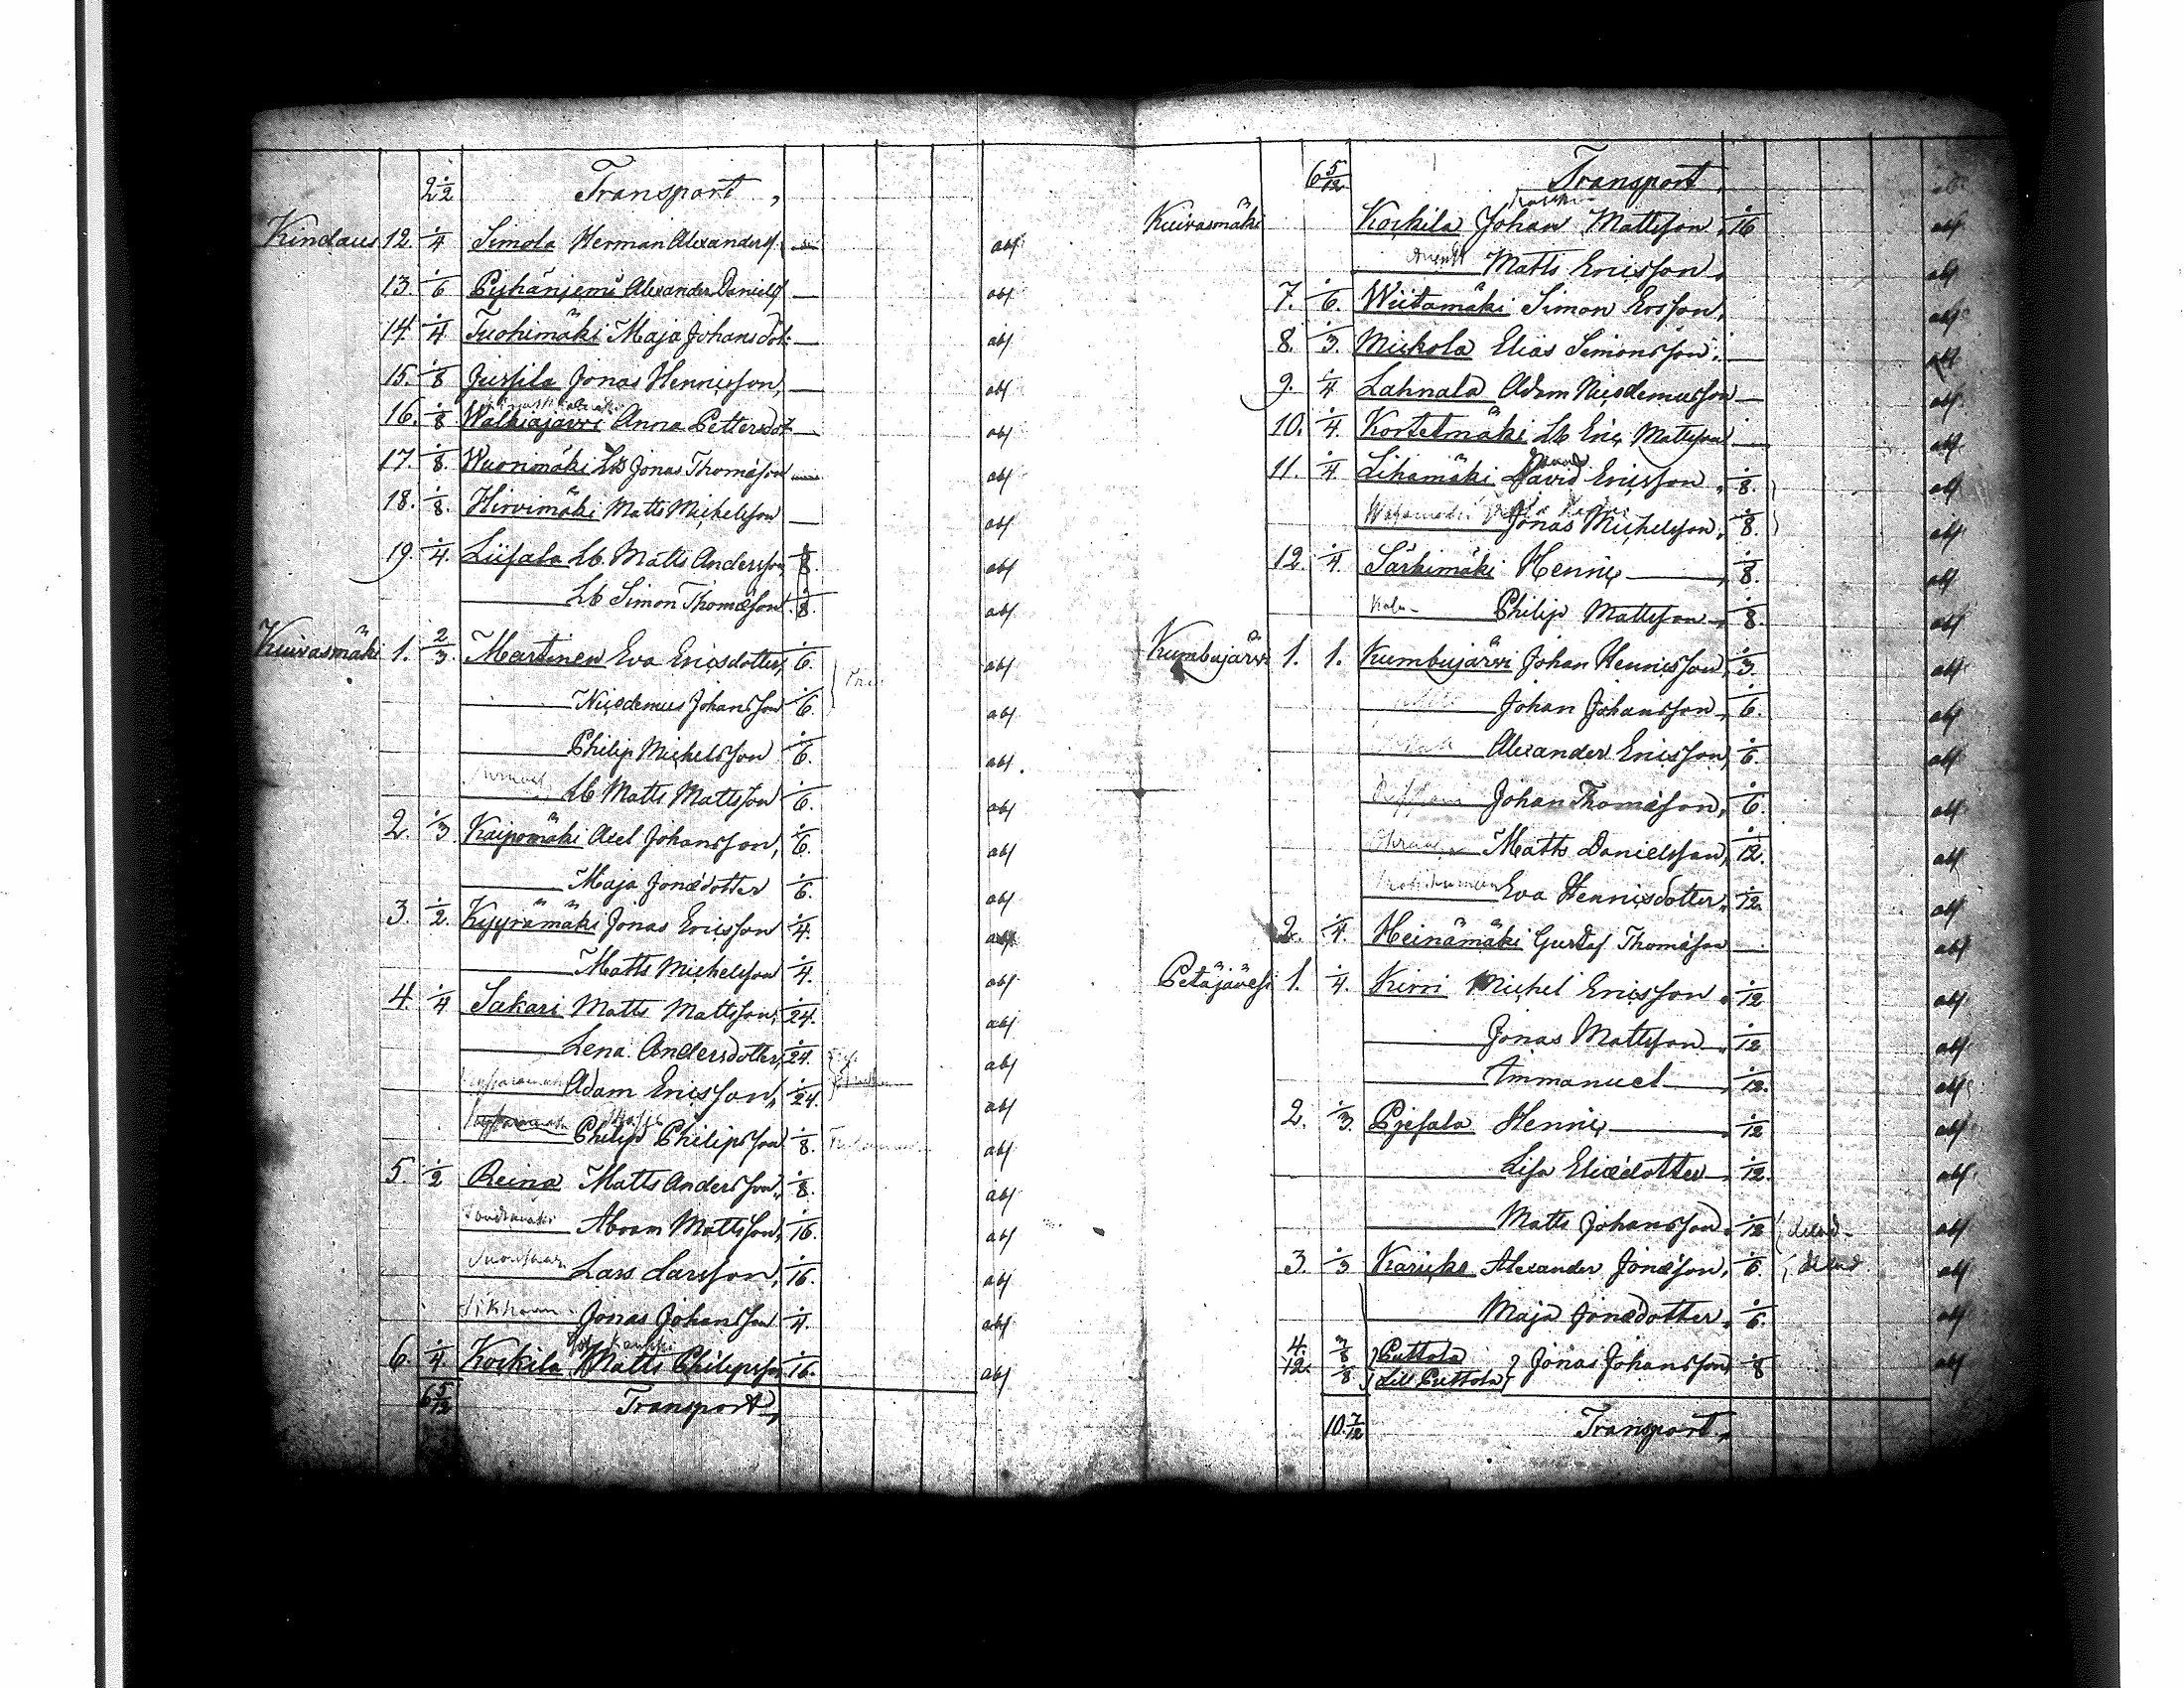 2 1/2 Transport
Kindaus 12. 1/4 Simola Herman Alexanders — abf
13. 1/6 Pyhäniemi Alexander Daniels — abf
14. 1/4 Tuohimäki Maja Johansdot: — abf
15. 1/8 Jussila Jonas Henricsson, — abf
16. 1/8 Walkiajärvi Anna Pettersdot — abf
17. 1/8. Wuorimäki Lb Jonas Thomasson — abf
18. 1/8. Hirvimäki Matts Michelsson — abf
19. 1/4. Liisala Lb. Matts Andersson 1/8. abf
— Lb Simon Thomæson 1/8. abf
Kuivasmäki 1. 2/3. Martinen Eva Ericsdotter, 1/6. abf
— Nicodemus Johansson 1/6. abf
— Philip Michelsson 1/6. abf.
— Lb Matts Mattsson 1/6. abf
2. 1/3 Kaipomäki Axel Johansson, 1/6. abf
— Maja Jonædotter 1/6. abf
3. 1/2. Kyyrämäki Jonas Ericsson 1/4. abf
— Matts Michelsson 1/4. abf.
4. 1/4 Sakari Matts Mattsson, 1/24. abf
— Lena Andersdotter, 1/24. abf
— Adam Ericsson, 1/24. abf
— Philip Philipsson 1/8. abf
5. 1/2 Reina Matts Andersson, 1/8. abf
— Abram Mattsson, 1/16. abf
— Lars Larsson, 1/16. abf
— Jonas Johansson 1/4. abf
6. 1/4. Kockila Matts Philipsson 1/16. abf
6 5/12 Transport,
6 5/12. Transport, abf
Kuivasmäki Kockila Johan Mattsson, 1/16 abf
— Matts Ericsson, abf
7. 1/6. Wiitamäki Simon Ersson, abf
8. 1/3. Mickola Elias Simonsson, — abf
9. 1/4 Lahnala Adam Nicodemusson — abf
10. 1/4. Kortetmäki Lb Eric Mattsson — abf
11. 1/4 Lihamäki David Ericsson, 1/8. abf
— Jonas Michelsson, 1/8. abf
12. 1/4. Särkimäki Henric —, 1/8. abf
— Philip Mattsson, 1/8. abf
Kumbujärvi 1. 1. Kumbujärvi Johan Henricsson, 1/3. abf
— Johan Johansson, 1/6. abf
— Alexander Ericsson, 1/6. abf
— Johan Thomæson, 1/6. abf
— Matts Danielsson, 1/12. abf
— Eva Henricsdotter, 1/12. abf
2. 1/4. Heinämäki Gustaf Thomæson — abf
Petäjävesi 1. 1/4. Kirri Michel Ericsson, 1/12 abf
— Jonas Mattsson, 1/12 abf
— Immanuel —, 1/12. abf
2. 1/3. Pjesala Henric —, 1/12 abf
— Lisa Eliædotter, 1/12. abf
— Matts Johansson, 1/12 abf
3. 1/3 Karicko Alexander Jonæson, 1/6. abf
— Maja Jonædotter, 1/6. abf
4. 3/8 Puttola
12. 1/8 Lill Puttola Jonas Johansson, 1/8 abf
10 7/12 Transport,